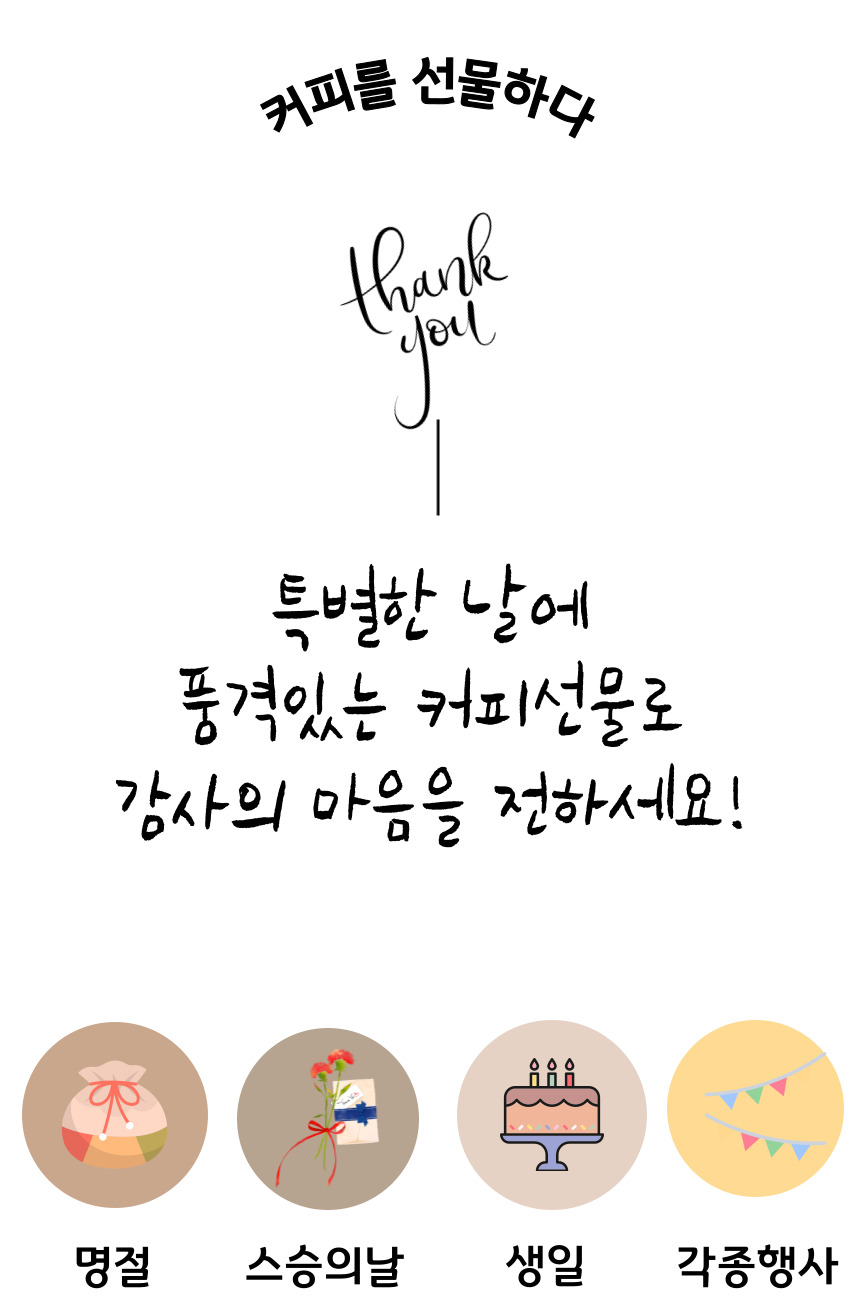 커피를 선물하다
thank
you
특별한 날에
풍격있는 커피선물로
감사의 마음을 전하세요!
명절
스승의날
생일
각종행사